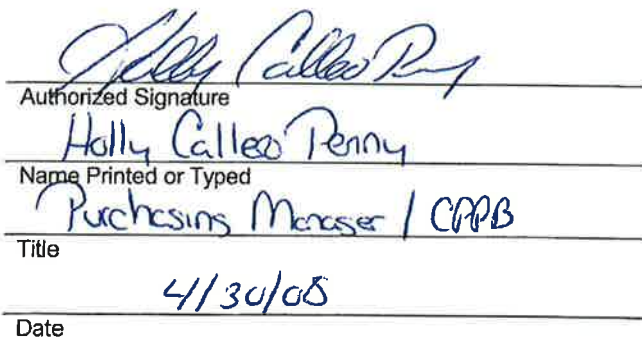 Holly Calleo Penny
Authorized Signature
Holly Calleo Penny
Name Printed or Typed
Purchasing Manager / CPPB
Title
4/30/08
Date